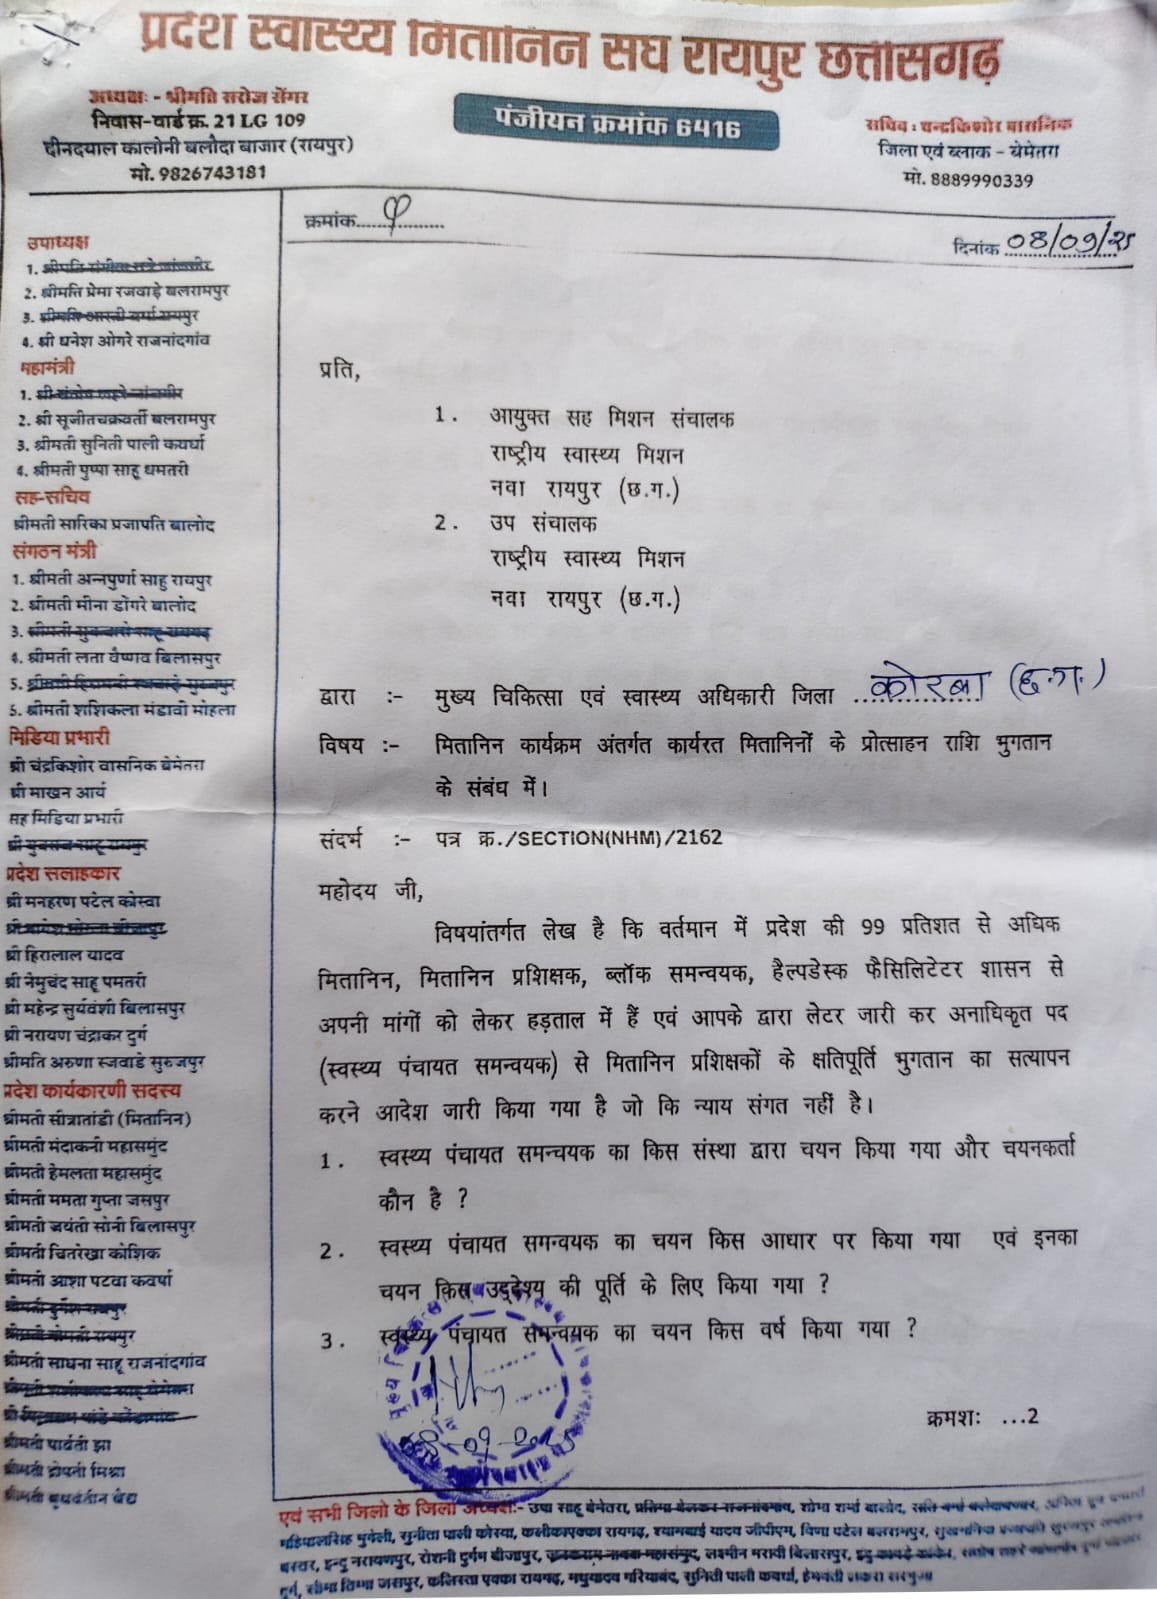 प्रदेश स्वास्थ्य मितानिन संघ रायपुर छत्तीसगढ़
अध्यक्षः - श्रीमति सरोज सेंगर
निवास-वार्ड क्र. 21 LG 109
दीनदयाल कालोनी बलौदा बाजार (रायपुर)
मो. 9826743181
पंजीयन क्रमांक 6416
सचिव : चन्द्रकिशोर वासनिक
जिला एवं ब्लाक - बेमेतरा
मो. 8889990339
क्रमांक
दिनांक 08/09/25
उपाध्यक्ष
1.
2. श्रीमति प्रेमा रजवाड़े बलरामपुर
3. श्रीमति आरती वर्मा रायपुर
4. श्री धनेश ओगरे राजनांदगांव
महामंत्री
1.
2. श्री सूजीतचक्रवर्ती बलरामपुर
3. श्रीमती सुनिती पाली कवर्धा
4. श्रीमती पुष्पा साहू धमतरी
सह-सचिव
श्रीमती सारिका प्रजापति बालोद
संगठन मंत्री
1. श्रीमती अन्नपुर्णा साहु रायपुर
2. श्रीमती मीना डोंगरे बालोद
3.
4. श्रीमती लता वैष्णव बिलासपुर
5.
5. श्रीमती शशिकला मंडावी मोहला
मिडिया प्रभारी
श्री चंद्रकिशोर वासनिक बेमेतरा
श्री माखन आर्य
सह मिडिया प्रभारी
प्रदेश सलाहकार
श्री मनहरण पटेल कोरबा
श्री हिरालाल यादव
श्री नेमुचंद साहू धमतरी
श्री महेन्द्र सुर्यवंशी बिलासपुर
श्री नरायण चंद्राकर दुर्ग
श्रीमति अरुणा रजवाडे सुरजपुर
प्रदेश कार्यकारणी सदस्य
श्रीमती सीत्रातांडी (मितानिन)
श्रीमती मंदाकनी महासमुंद
श्रीमती हेमलता महासमुंद
श्रीमती ममता गुप्ता जसपुर
श्रीमती जयंती सोनी बिलासपुर
श्रीमती चितरेखा कोशिक
श्रीमती आशा पटवा कवर्धा
श्रीमती साधना साहू राजनांदगांव
श्रीमती पार्वती झा
श्रीमती द्रोपती मिश्रा
श्रीमती
प्रति,
1. आयुक्त सह मिशन संचालक
राष्ट्रीय स्वास्थ्य मिशन
नवा रायपुर (छ.ग.)
2. उप संचालक
राष्ट्रीय स्वास्थ्य मिशन
नवा रायपुर (छ.ग.)
द्वारा :- मुख्य चिकित्सा एवं स्वास्थ्य अधिकारी जिला कोरबा (छ.ग.)
विषय :- मितानिन कार्यक्रम अंतर्गत कार्यरत मितानिनों के प्रोत्साहन राशि भुगतान
के संबंध में।
संदर्भ :- पत्र क्र./SECTION(NHM)/2162
महोदय जी,
विषयांतर्गत लेख है कि वर्तमान में प्रदेश की 99 प्रतिशत से अधिक
मितानिन, मितानिन प्रशिक्षक, ब्लॉक समन्वयक, हैल्पडेस्क फैसिलिटेटर शासन से
अपनी मांगों को लेकर हड़ताल में हैं एवं आपके द्वारा लेटर जारी कर अनाधिकृत पद
(स्वस्थ्य पंचायत समन्वयक) से मितानिन प्रशिक्षकों के क्षतिपूर्ति भुगतान का सत्यापन
करने आदेश जारी किया गया है जो कि न्याय संगत नहीं है।
1. स्वस्थ्य पंचायत समन्वयक का किस संस्था द्वारा चयन किया गया और चयनकर्ता
कौन है ?
2. स्वस्थ्य पंचायत समन्वयक का चयन किस आधार पर किया गया एवं इनका
चयन किस उद्देश्य की पूर्ति के लिए किया गया ?
3. स्वस्थ्य पंचायत समन्वयक का चयन किस वर्ष किया गया ?
क्रमशः ...2
एवं सभी जिलो के जिला अध्यक्षः- उषा साहू बेमेतरा, शोभा शर्मा बालोद,
महिपालसिंह मुंगेली, सुनीता पाली कोरबा, कलीकाएक्का रायगढ़, श्यामबाई यादव जीपीएम, विणा पटेल बलरामपुर,
बस्तर, इन्दु नरायणपुर, रोशनी दुर्गम बीजापुर, लक्ष्मीन मरावी बिलासपुर,
दुर्ग, सीमा तिग्गा जसपुर, कलिस्ता एक्का रायगढ़, मधुयादव गरियाबंद, सुनिती पाली कवर्धा,